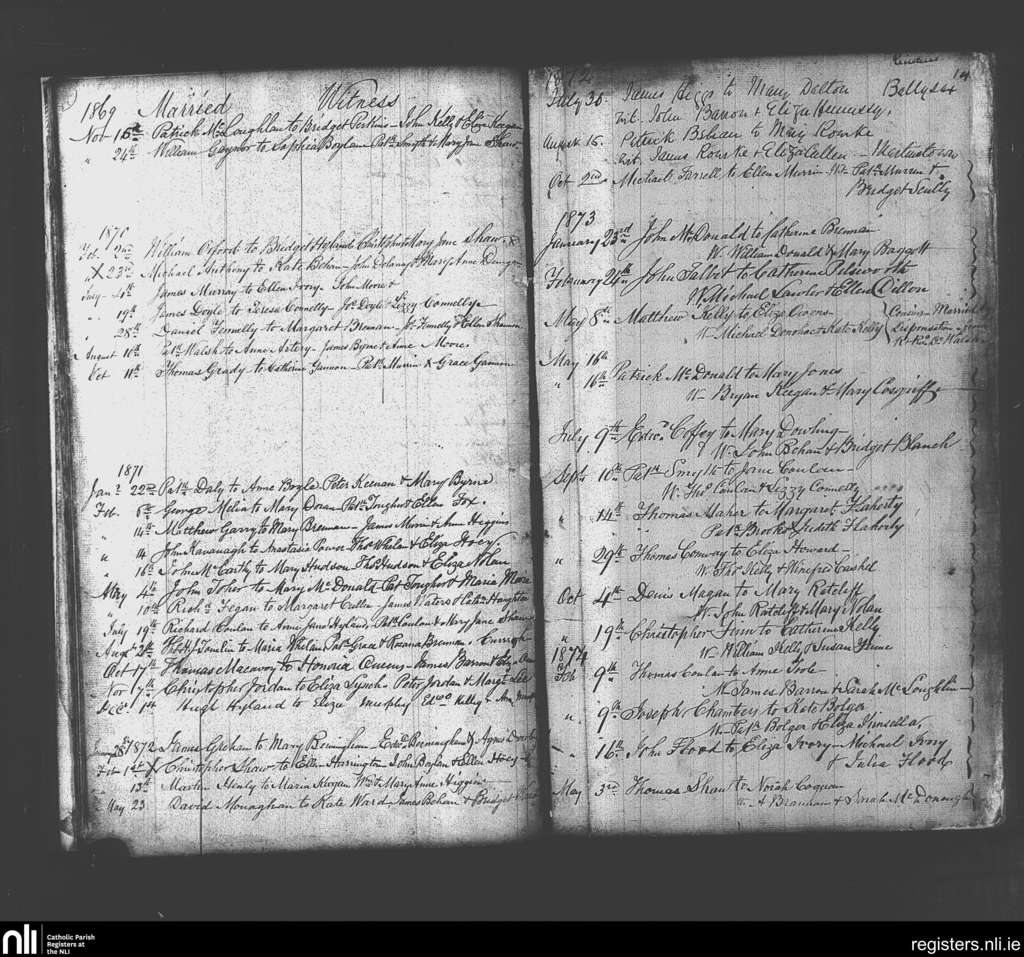 1869 Married Witness
Nov 16th Patrick McLoughlan to Bridget Perkins - John Kelly & Eliza Keegan
" 24th William Gaynor to Sophia Boylan Patk Smyth & Mary Jane Shaw
187
Feb. 2nd William Orford to Bridget Hyland Mary Jane Shaw
X 23rd Michael Anthony to Kate Behan - John Delany & Mary Anne
July 4th James Murray to Ellen Ivory - John Moore &
" 19th James Doyle to Teresa Connelly - Jas Doyle & Lizzy Connelly
" 28th Daniel Fennelly to Margaret Brennan - Fennelly & Ellen Shannon
August 11th Patk Walsh to Anne - James Byrne & Anne Moore.
Oct 11th Thomas Grady to Catherine Gannon - Patk Murrin & Grace Gannon
1871
Jany 22nd Patk Daly to Anne Boyle Peter Keenan & Mary Byrne
Feb. 6th George Melia to Mary Doran Patk Tougher & Ellen Fox.
" 14th Matthew Garry to Mary Brennan - James Moran & Anne Higgins
" 14 John Kavanagh to Anastasia Power Thos Whelan & Eliza Hoey.
" 16th John McCarthy to Mary Hudson Thos Hudson & Eliza Nolan
May 4th John Toher to Mary McDonald Pat Tougher & Maria Moore
" 10th Richd Fegan to Margaret Cullen James Waters & Cathn Haughton
July 19th Richard Conlan to Anne Jane Hyland - Patk Conlan & Mary Jane Shaw
Augt 2nd Tomlin to Maria Whelan Patk Grace & Rosanna Brennan - Curragh
Oct 17th Thomas Macavoy to Honoria Owens - James Barron &
Nov 7th Christopher Jordan to Eliza Lynch - Peter Jordan & Margt
Dec. 1st Hugh Hyland to Eliza Murphy Edwd Kelly &
28th 1872 James Graham to Mary Bermingham - Edwd Bermingham & Agnes
Feb 1st X Christopher Shaw to Ellen Harrington - John Boylan & Ellen Hoey
" 13th Martin Henly to Maria Morgan Wm & Mary Anne Higgins
May 23 David Monaghan to Kate Ward - James Behan & Bridget
1872
July 30. James Heggs to Mary Dalton Ballysax
wit. John Barron & Eliza Hennessy.
August 15. Patrick Behan to Mary Rourke
wit. James Rourke & Eliza Cullen -
Oct 2nd Michael Farrell to Ellen Murrin Wt Patk Murrin &
Bridget Scully
1873
January 23rd John McDonald to Catherine Brennan
W. William Donald & Mary Baggott
February 24th John Talbot to Catherine Pidsworth
W. Michael Lawler & Ellen Dillon
May 8th Matthew Kelly to Eliza Owens - Cousins Married by
W - Michael Donohoe & Kate Kelly Dispensation from
Rt Revd Dr Walshe
May 16th
" 16th Patrick McDonald to Mary Jones
W - Bryan Keegan & Mary Cosgriff
July 9th Edwd Coffey to Mary Dowling -
W. John Behan & Bridget Blanch
Sept 10th Patk Smyth to Jane Conlan -
W. Thos Conlan & Lizzy Connelly
" 14th Thomas Maher to Margaret Flaherty
Patk Brooks & Judith Flaherty
" 29th Thomas Conway to Eliza Howard -
W. Thos Kelly & Winefred Cashel
Oct 4th Denis Magan to Mary Ratcliff
W. John Ratcliff & Mary Nolan
" 19th Christopher Dunn to Catherine Kelly
W - William Kelly & Susan Dunne
1874
Feb 9th Thomas Conlan to Anne Toole -
W. James Barron & Sarah McLoughlin -
" 9th Joseph Chambers to Kate Bolger
W - Patk Bolger & Eliza Kinsella,
" 16th John Flood to Eliza Ivory - Michael Ivory
& Julia Flood
May 3rd Thomas Shaw to Norah Cogman
W. A Branham & Sarah McDonough
nli
Catholic Parish
Registers at
the NLI
registers.nli.ie